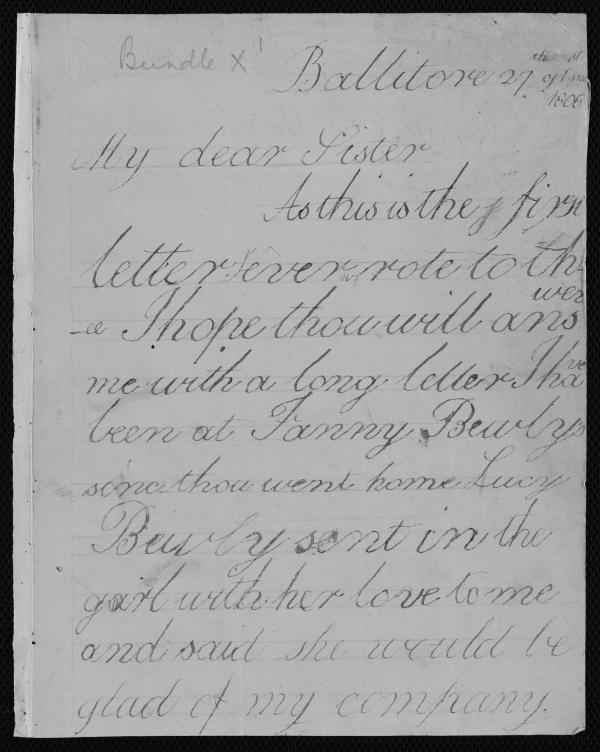 Bundle X'
Ballitore 27
1806
My dear Sister
As this is the first
letter I ever rote to th-
-ee I hope thou will answer
me with a long letter I have
been at Fanny Bewlys
since thou went home Lucy
Bewly sent in the
girl with her love to me
and said she would be
glad of my company.